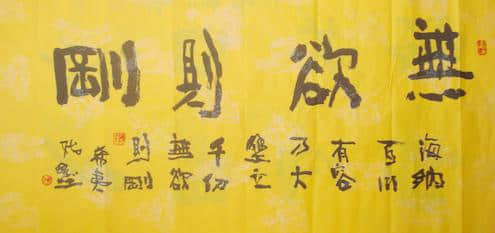 無欲則剛
海納
百川
有容
乃大
壁立
千仞
無欲
則剛
希夷